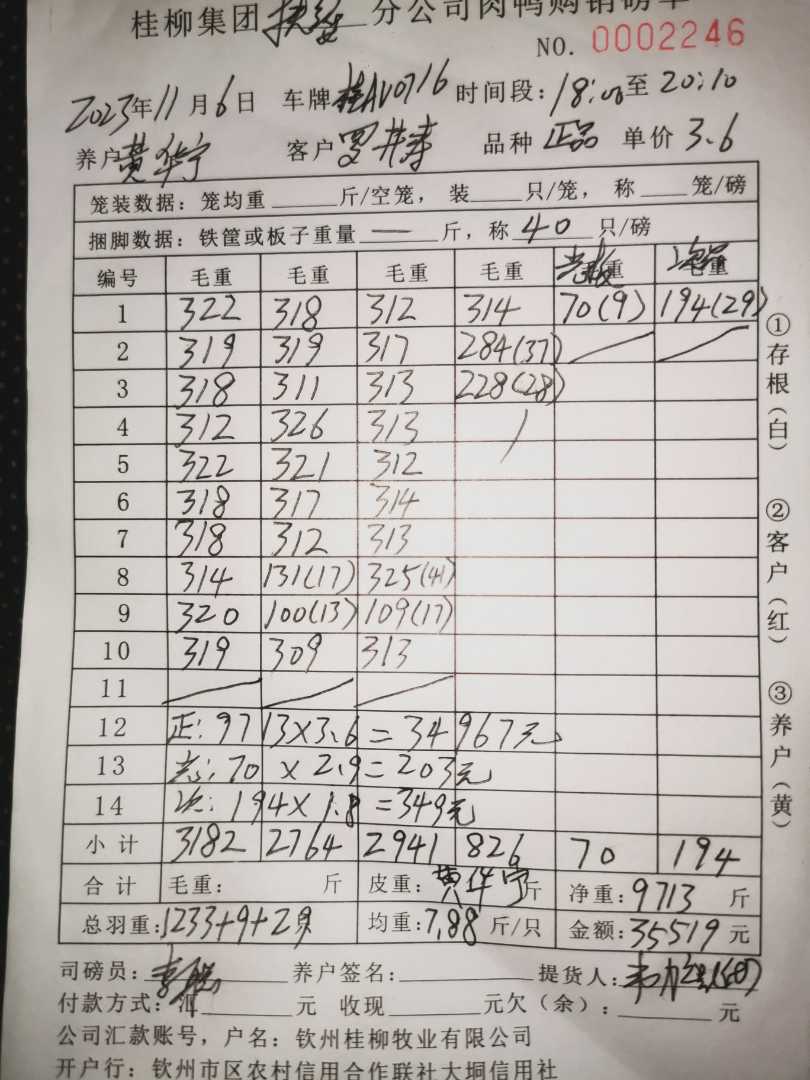 桂柳集团扶绥分公司肉鸭购销磅单
NO. 0002246
2023年11月6日 车牌桂AV0716 时间段:18:00至20:10
养户黄华宁 客户罗井寿 品种正品 单价3.6
笼装数据:笼均重____斤/空笼,装____只/笼,称____笼/磅
捆脚数据:铁筐或板子重量 — 斤,称40只/磅
编号 毛重 毛重 毛重 毛重 毛重 毛重
1 322 318 312 314 70(9) 194(29)
2 319 319 317 284(37)
3 318 311 313 228(28)
4 312 326 313
5 322 321 312
6 318 317 314
7 318 312 313
8 314 131(17) 325(41)
9 320 100(13) 109(17)
10 319 309 313
11
12 正:9713×3.6=34967元
13 :70×2.9=203元
14 次:194×1.8=349元
小计 3182 2764 2941 826 70 194
合计 毛重: 斤 皮重:黄华宁斤 净重:9713斤
总羽重:1233+9+29 均重:7.88斤/只 金额:35519元
司磅员: 养户签名: 提货人:
付款方式:汇____元 收现____元欠(余):____元
公司汇款账号,户名:钦州桂柳牧业有限公司
开户行:钦州市区农村信用合作联社大垌信用社
①存根(白)
②客户(红)
③养户(黄)